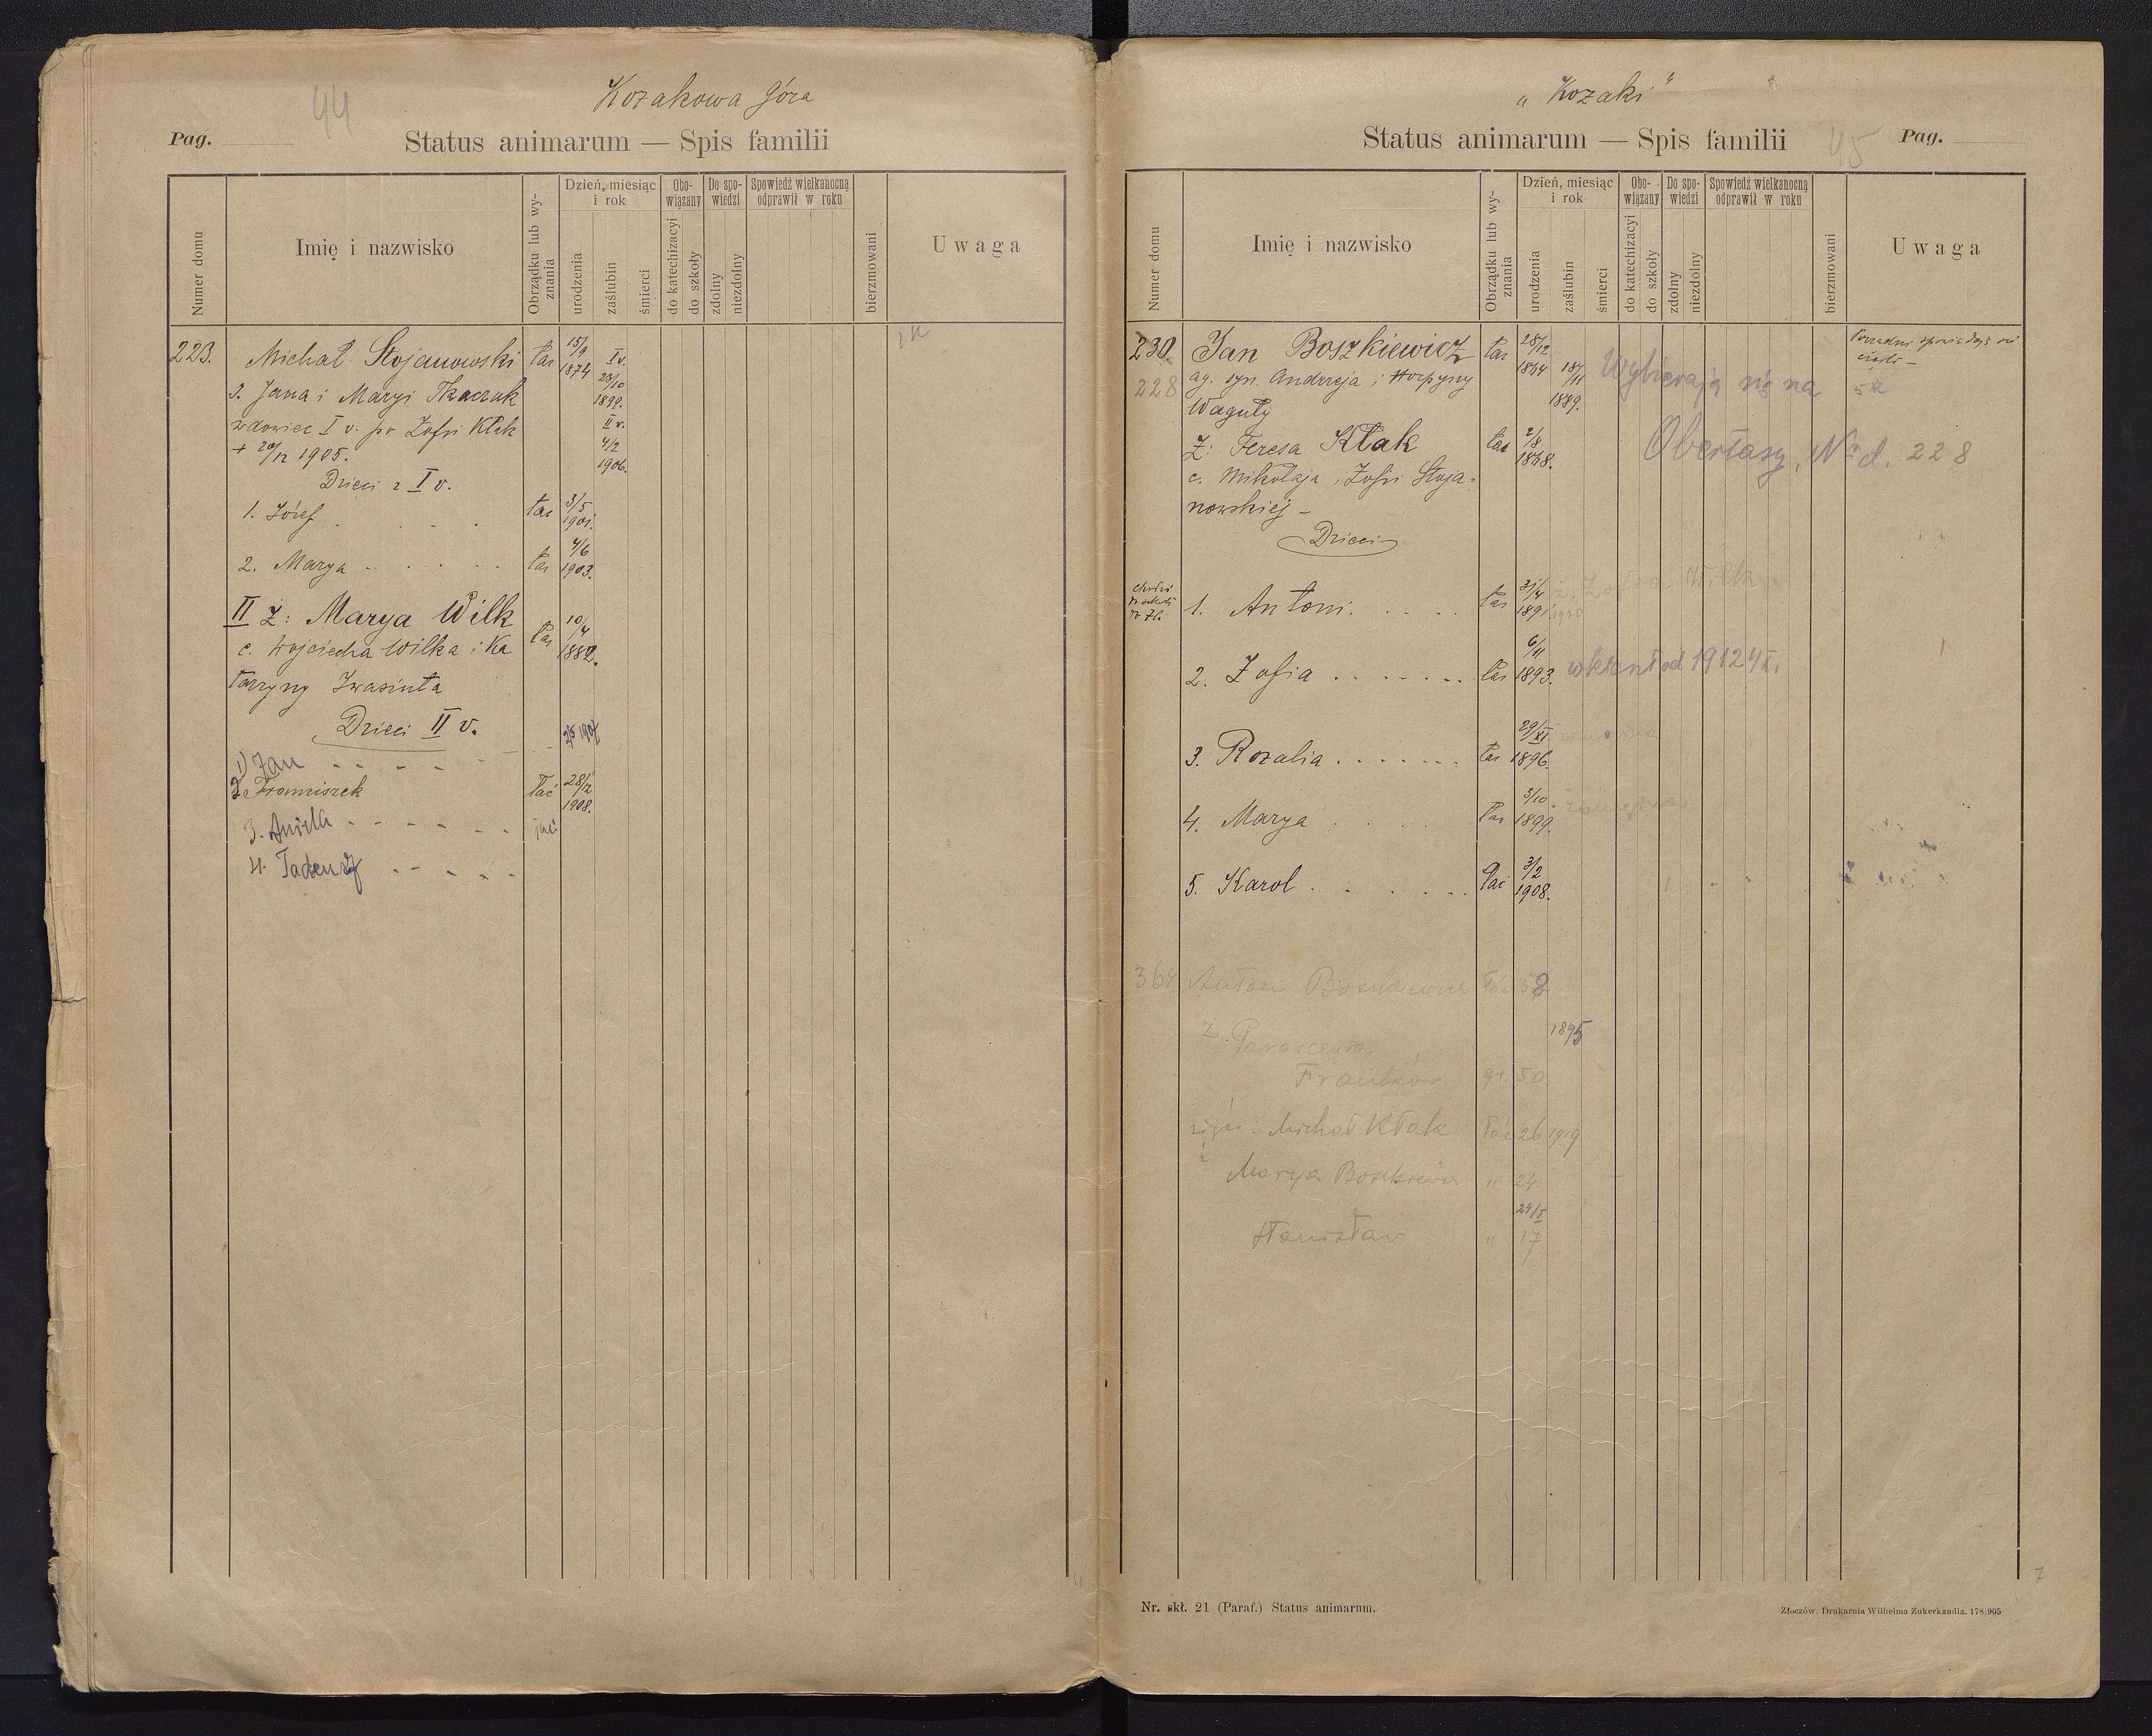 44
Kozakowa Góra
Pag.
Status animarum — Spis familii
Numer domu
Imię i nazwisko
Obrządku lub wyznania
Dzień, miesiąc i rok
urodzenia
zaślubin
śmierci
Obowiązany
do katechizacyi
do szkoły
Do spowiedzi
zdolny
niezdolny
Spowiedź wielkanocną odprawił w roku
bierzmowani
Uwaga
223. Michał Stojanowski łac 15/9 1874 I v. 23/10 1899. II v. 4/2 1906.
s. Jana i Maryi Tkaczuk
wdowiec I v. po Zofii Kłak
+ 20/12 1905.
Dzieci z I v.
1. Józef łac 3/5 1901.
2. Marya łac 4/6 1903.
II Ż: Marya Wilk łac 10/4 1882.
c. Wojciecha Wilka i Ka
tarzyny Iwasiuta
Dzieci II v.
1) Jan 1907
2. Franciszek łać 28/12 1908.
3. Aniela
4. Tadeusz
"Kozaki"
Status animarum — Spis familii
45
Pag.
Numer domu
Imię i nazwisko
Obrządku lub wyznania
Dzień, miesiąc i rok
urodzenia
zaślubin
śmierci
Obowiązany
do katechizacyi
do szkoły
Do spowiedzi
zdolny
niezdolny
Spowiedź wielkanocną odprawił w roku
bierzmowani
Uwaga
230. Jan Boszkiewicz łac 28/12 1889.
228 ag. syn. Andrzeja i Horpyny
Waguły
Wybierają się na
Obertasy, No d. 228
Ż: Teresa Kłak łac 2/8
c. Mikołaja i Zofii Stoja-
nowskiej -
Dzieci
1. Antoni łac 31/4 1891.
2. Zofia łac 6/11 1893. 1912
3. Rozalia łac 29/XI 1896.
4. Marya łac 3/10 1899.
5. Karol łać 3/2 1908.
364 Antoni Boszkiewicz 58
1895
ż. Parascewia
Franków gr. 50
zięć: Michał Kłak łać 26 1919
i Marya Boszkiewicz " 24
24/I
Stanisław " 17
Nr. skł. 21 (Paraf.) Status animarum.
Złoczów. Drukarnia Wilhelma Zukerkandla. 178 905